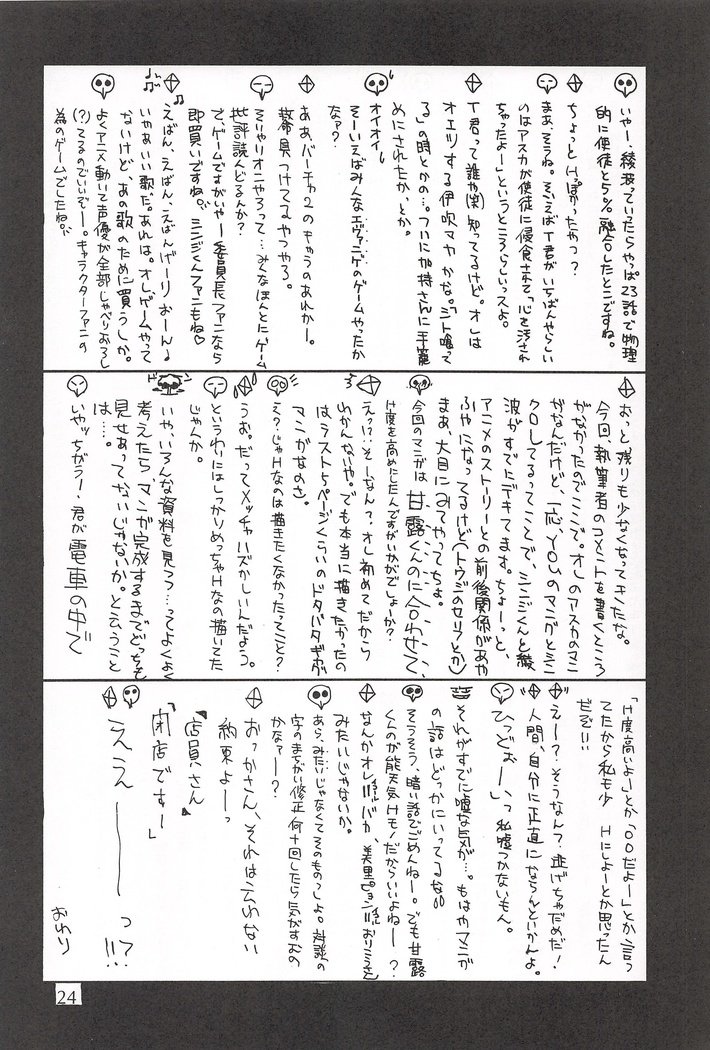 いやー、綾波っていったらやっぱ23話で物理
的に使徒と5%融合したとこですね。
ちょっとHっぽかったやつ?
まあそうね。そういえばT君がいちばんやらしい
のはアスカが使徒に侵食されて「心を汚され
ちゃったよー」というところらしいっスよ。
T君って誰や(笑)知ってるけど。オレは
オエッする伊吹マヤかな。「ミト喰って
る」の時とかの…。ついに加持さんに手籠
めにされたか、とか。
オイオイ
そーいえばみんなエヴァンゲのゲームやったか
なァ?
ああ、バーチャ2のキャラのあれかー。
拷問具つけてるやつやろ。
そりゃリオンやろって…みんなほんとにゲーム
批評読んどるんか?
でゲームですがいやー委員長ファンなら
即買いですね。シンジくんファンもね♡
えばん、えばん、えばんげーりおーん♩
いやあいい歌だ。あれは。オレゲームやって
ないけど、あの歌のために買うしか。
よくアニメ動いて声優が全部しゃべりおろし
(?)てるのでいいぞー。キャラクターファンの
為のゲームでしたね。
おっと残りも少なくなってきたな。
今回、執筆者のコメントを書くところ
がなかったのでここで。オレのアスカのマン
ガなんだけど、一応、YOUのマンガとシン
クロしてるってことで、シンジくんと綾
波がすでにデキてます。ちょーっと、
アニメのストーリーとの前後関係があや
ふやになってるけど(トウジのセリフとか)
まあ、大目にみてやってちょ。
今回のマンガは甘露くんのに合わせて、
H度を高めにしたんですがいかがでしょーか?
えっ!?そーなん?、オレ初めてだから
わかんないや。でも本当に描きたかったの
はラスト5ページくらいのドタバタギャグ
マンガなのさ。
え?じゃHなのは描きたくなかったってこと?
うお。だってメッチャハズかしいんだよう。
というわりにはしっかりめっちゃHなの描いてた
じゃんか。
いや、いろんな資料を見つつ…ってよくよく
考えたらマンガ完成するまでどっちも
見せあってないじゃないか。と云うこと
は…。
いやッちがうー・君が電車の中で
「H度高いよー」とか「〇〇だよー」とか言っ
てたから私も少しHにしよーとか思ったん
だぞ!!
えー?そうなん?、逃げちゃだめだ!
人間、自分に正直にならんといかんよ。
ひっどぉー、っ私嘘つかないもん。
それがすでに嘘な気が…。もはやマンガ
の話はどっかにいってるな
そうそう、暗い話でごめんねー。でも甘露
くんのが能天気Hモノだからいいよねー?
なんかオレ=バカ、美里ピョン=おりこうさん
みたいじゃないか。
あら、みたいじゃなくてそのものっしょ。対談の
字のまちがい修正何十回したら気がすむの
かなァー?
おっかさん、それは云わない
約束よーっ
店員さん
「閉店ですー」
ええーーーっ?!!
おわり
24